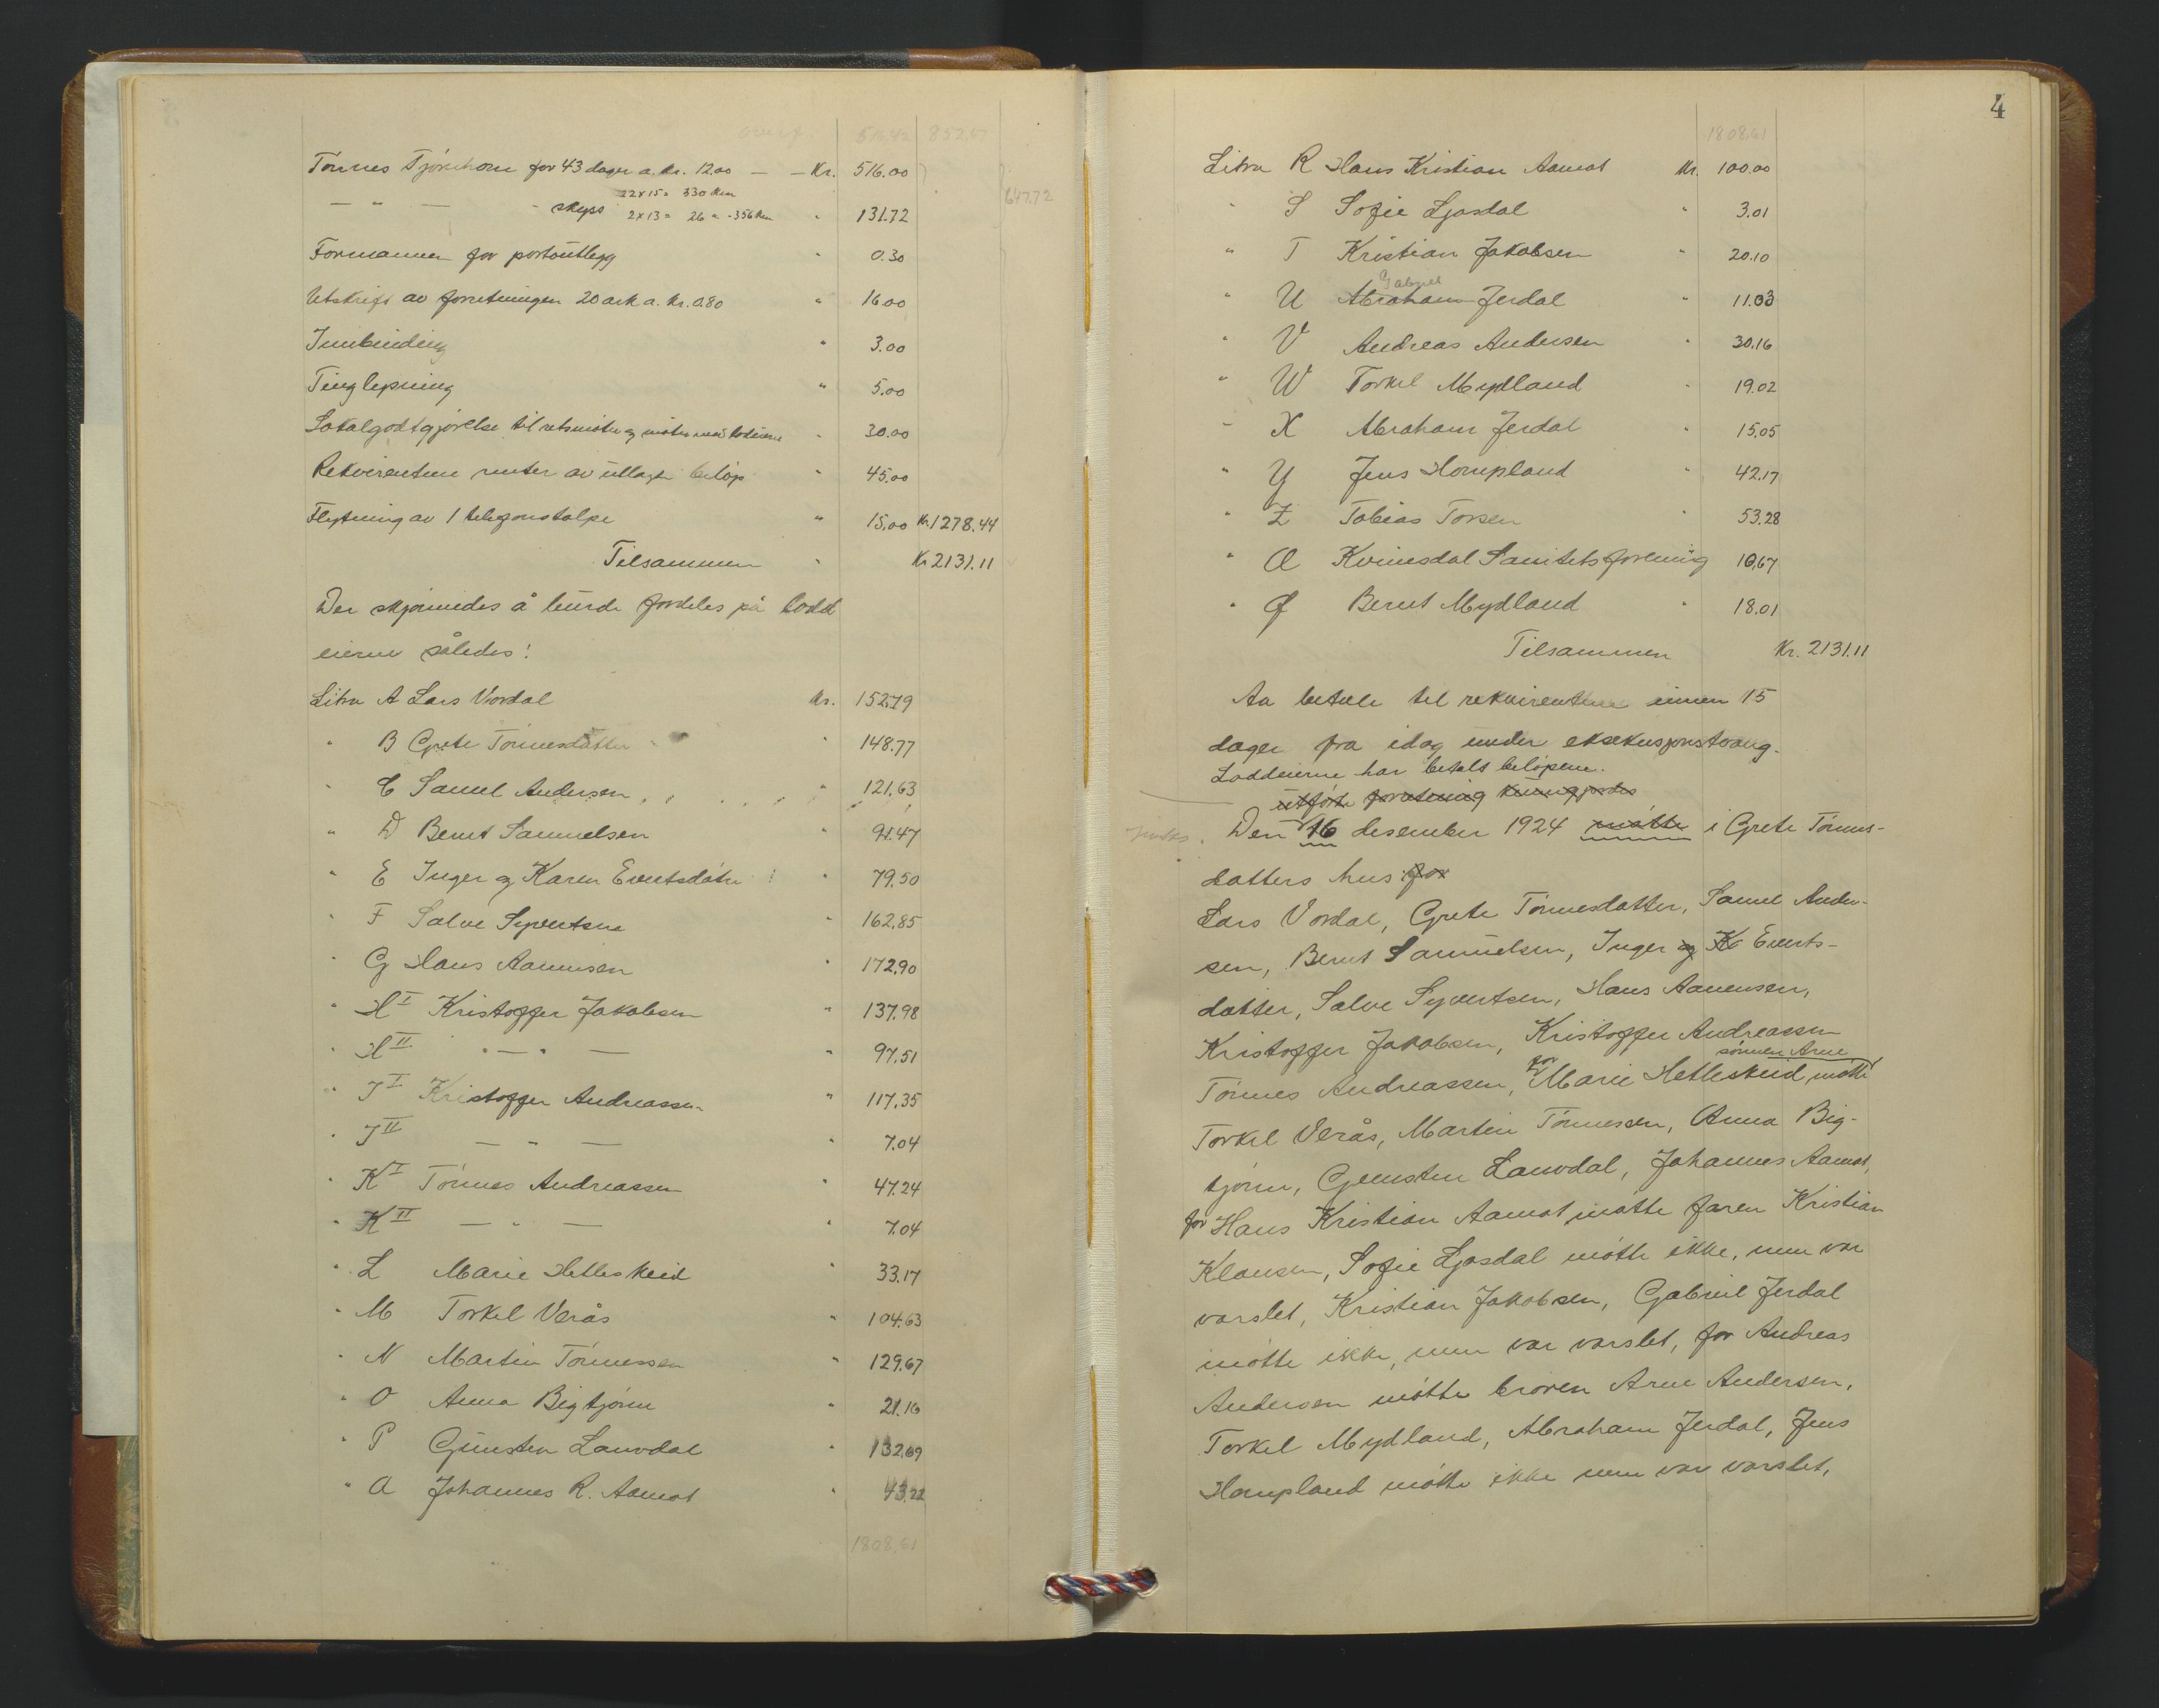 overf. 516.42 852.67
Tønnes Tjørnhom for 43 dager a. kr. 12.00 — — Kr. 516.00
22x15 = 330 km
— " — - skyss 2x13 = 26 " - 356 km " 131.72
647.72
Formannen for portoutlegg " 0.30
Utskrift av forretningen 20 ark a. kr. 0.80 " 16.00
Innbinding " 3.00
Tinglysning " 5.00
Lokalgodtgjørelse til retsmøter og møter med loddeierne " 30.00
Rekvirentene renter av utlagte beløp " 45.00
Flytning av 1 telefonstolpe " 15.00 Kr. 1278.44
Tilsammen " Kr 2131.11
Der skjønnedes å burde fordeles på lodd
eierne således:
Litra A Lars Vordal Kr. 152.79
" B Grete Tønnesdatter " 148.77
" C Samel Andersen " 121.63
" D Bernt Samuelsen " 91.47
" E Inger og Karen Evertsdatre " 79.50
" F Salve Syvertsen " 162.85
" G Hans Aanensen " 172.90
" H I Kristoffer Jakobsen " 137.98
" H II " — " — " 97.51
" J I Kristoffer Andreassen " 117.35
" J II — " — " 7.04
" K I Tønnes Andreassen " 47.24
" K II — " — " 7.04
" L Marie Hetleskeid " 33.17
" M Torkel Verås " 104.63
" N Martin Tønnessen " 129.67
" O Anna Bigtjønn " 21.16
" P Gunsten Lauvdal " 132.69
" Q Johannes R. Aamot " 43.22
1808.61
4
1808.61
Litra R Hans Kristian Aamot Kr. 100.00
" S Sofie Ljosdal " 3.01
" T Kristian Jakobsen " 20.10
Gabriel
" U Abraham Jerdal " 11.03
" V Andreas Andersen " 30.16
" W Torkel Mydland " 19.02
" X Abraham Jerdal " 15.05
" Y Jens Hompland " 42.17
" Z Tobias Torsen " 53.28
" Æ Kvinesdal Sanitetsforening 10.67
" Ø Bernt Mydland " 18.01
Tilsammen Kr. 2131.11
Aa betale til rekvirentene innen 15
dager fra idag under eksekusjonstvang.
Loddeierne har betalt beløpene.
utførte forretning kunngjordes
Den 16 desember 1924 møtte i Grete Tønnes-
datters hus for
Lars Vordal, Grete Tønnesdatter, Samel Ander-
sen, Bernt Samuelsen, Inger og K Everts-
datter, Salve Syvertsen, Hans Aanensen,
Kristoffer Jakobsen, Kristoffer Andreassen
sønnen Arne
Tønnes Andreassen, for Marie Hetleskeid møtte
Torkel Verås, Martin Tønnessen, Anna Big-
tjønn, Gunsten Lauvdal, Johannes Aamot,
for Hans Kristian Aamot møtte faren Kristian
Klausen, Sofie Ljosdal møtte ikke, men var
varslet, Kristian Jakobsen, Gabriel Jerdal
møtte ikke, men var varslet, for Andreas
Andersen møtte broren Arne Andersen,
Torkel Mydland, Abraham Jerdal, Jens
Hompland møtte ikke men var varslet,